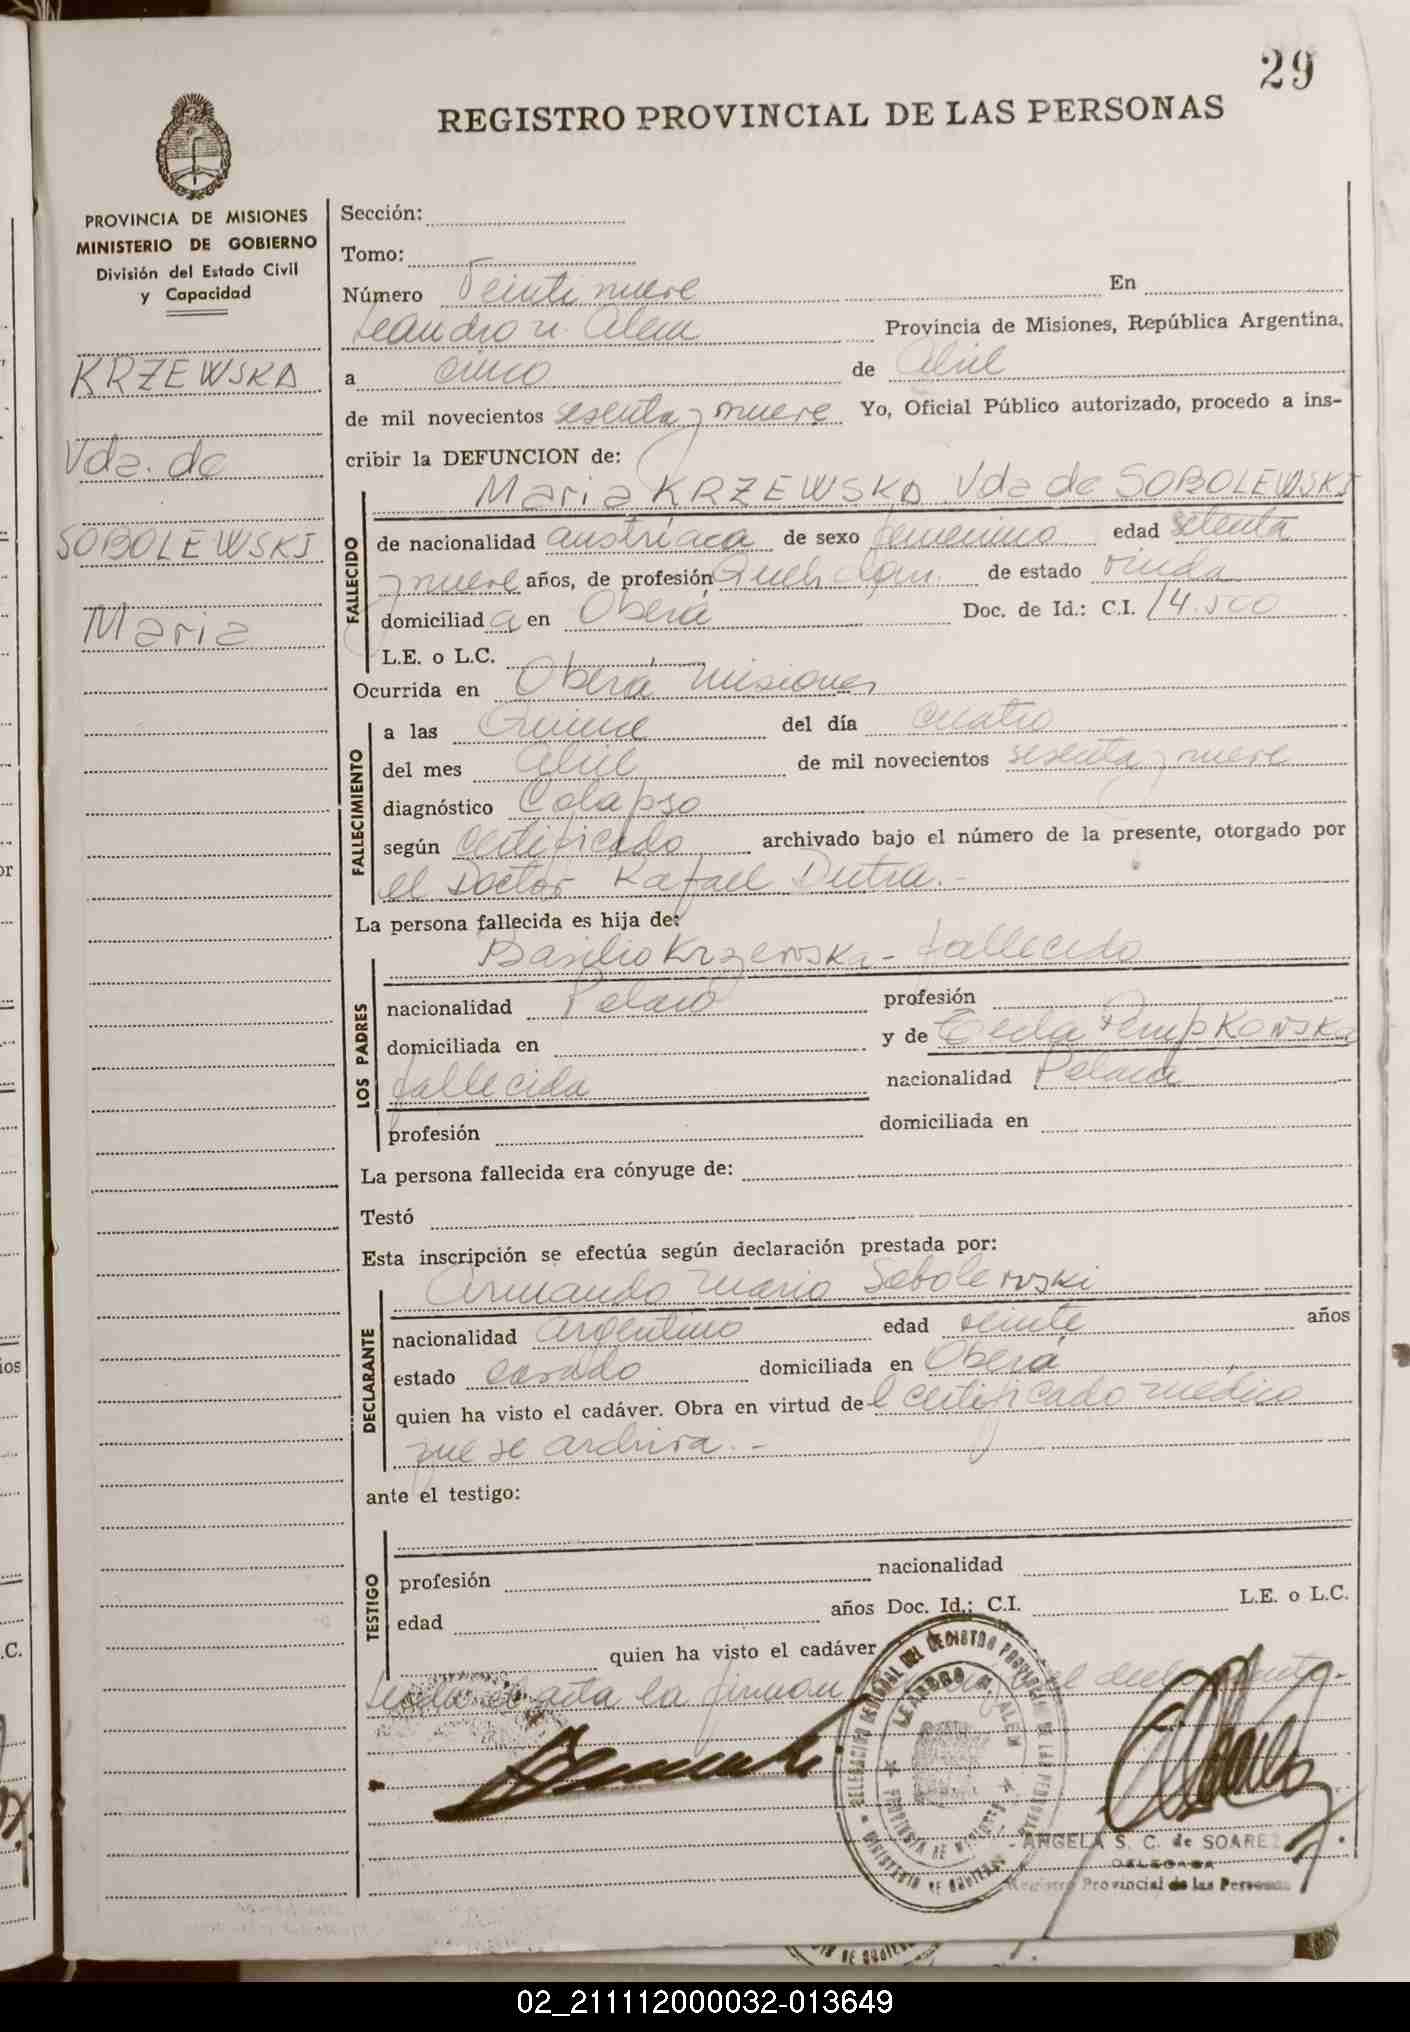 29
REGISTRO PROVINCIAL DE LAS PERSONAS
PROVINCIA DE MISIONES
MINISTERIO DE GOBIERNO
División del Estado Civil
y Capacidad
KRZEWSKA
Vda. de
SOBOLEWSKI
Maria
Sección:
Tomo:
Número Veinti nueve En
Leandro N. Alem Provincia de Misiones, República Argentina,
a cinco de Abril
de mil novecientos sesenta y nueve Yo, Oficial Público autorizado, procedo a ins-
cribir la DEFUNCION de:
Maria KRZEWSKA Vda de SOBOLEWSKI
FALLECIDO
de nacionalidad austriaca de sexo femenino edad setenta
y nueve años, de profesión de estado viuda
domiciliad a en Oberá Doc. de Id.: C.I. 14.500
L.E. o L.C.
Ocurrida en Oberá Misiones
FALLECIMIENTO
a las Quince del día cuatro
del mes Abril de mil novecientos sesenta y nueve
diagnóstico Colapso
según certificado archivado bajo el número de la presente, otorgado por
el Doctor Rafael Dutra.-
La persona fallecida es hija de:
Basilio Krzewska - fallecido
LOS PADRES
nacionalidad Polaco profesión
domiciliada en y de Tecla
fallecida nacionalidad Polaca
profesión domiciliada en
La persona fallecida era cónyuge de:
Testó
Esta inscripción se efectúa según declaración prestada por:
Armando Mario Sobolewski
DECLARANTE
nacionalidad Argentino edad veinte años
estado casado domiciliada en Oberá
quien ha visto el cadáver. Obra en virtud de l certificado médico
que se archiva.-
ante el testigo:
TESTIGO
profesión nacionalidad
edad años Doc. Id.: C.I. L.E. o L.C.
quien ha visto el cadáver
Leida el acta la firman el declarante.-
DELEGACION REGIONAL DEL REGISTRO PROVINCIAL DE LAS PERSONAS
LEANDRO N. ALEM
PROVINCIA DE MISIONES
MINISTERIO DE GOBIERNO
ANGELA S. C. de SOAREZ
DELEGADA
Registro Provincial de las Personas
02_211112000032-013649